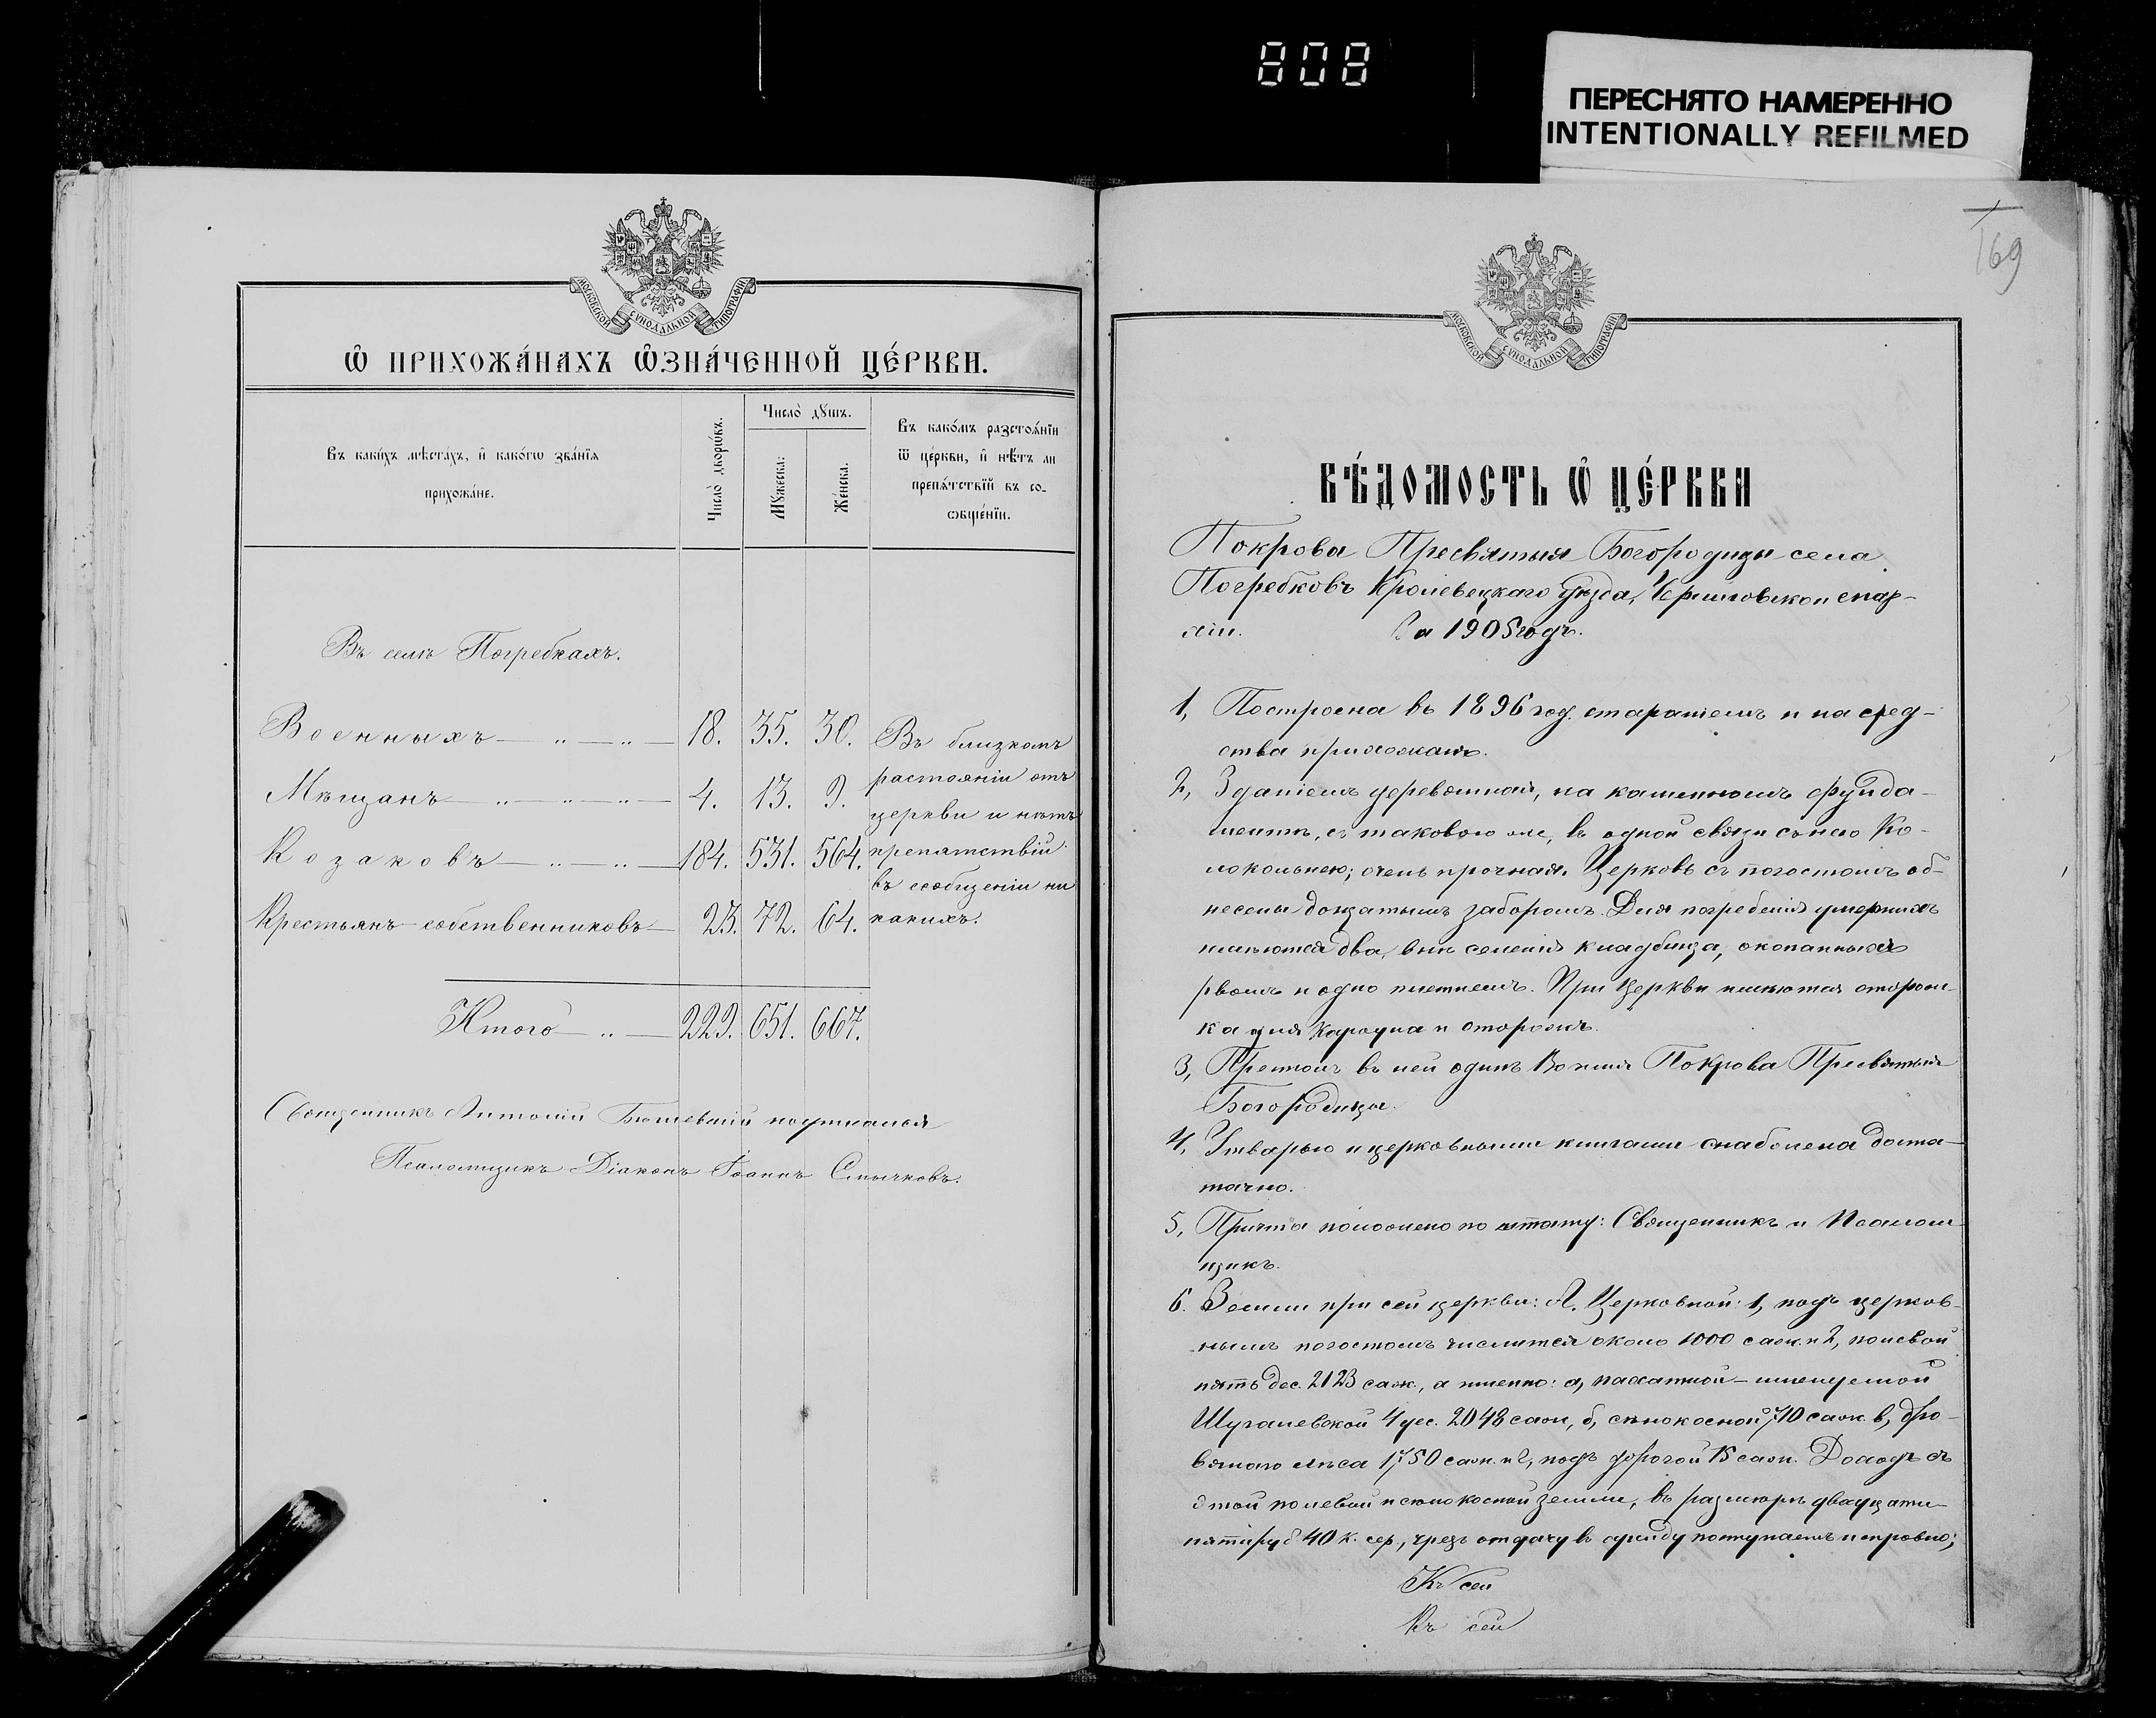 808
ПЕРЕСНЯТО НАМЕРЕННО
INTENTIONALLY REFILMED
169
МОСКОВСКОЙ СѴНОДАЛЬНОЙ ТИПОГРАФІИ
Ѡ ПРИХОЖА́НАХЪ ѠЗНА́ЧЕННОЙ ЦЕ́РКВИ.
Въ каки́хъ мѣста́хъ, и како́гѡ зва́нїѧ
прихожа́не.
Число̀ дворѡ́въ.
Число̀ дꙋшъ.
Мꙋ́жеска:
Же́нска.
Въ како́мъ разстоѧ́нїи
ѿ це́ркви, и нѣ́тъ ли
препѧ́тствїй въ со-
ѻбще́нїи.
Въ селѣ Погребкахъ.
Военныхъ — „ — „ — 18. 35. 30.
Мѣщанъ — „ — „ — „ — 4. 13. 9.
Козаковъ — „ — „ — 184. 531. 564.
Крестьянъ-собственниковъ — 23. 72. 64.
Въ близкомъ
растояніи отъ
церкви и нѣтъ
препятствій
въ сообщеніи ни
какихъ.
Итого — „ — 229. 651. 667.
Священникъ Антоній подписался
Псаломщикъ Діаконъ Іоаннъ Смычковъ.
МОСКОВСКОЙ СѴНОДАЛЬНОЙ ТИПОГРАФІИ
ВѢ́ДОМОСТЬ Ѡ ЦЕ́РКВИ
Покрова Пресвятыя Богородицы села
Погребковъ Кролевецкаго уѣзда, Черниговской епар-
хіи. За 1905 годъ.
1, Построена въ 1896 год. стараніемъ и на сред-
ства прихожанъ.
2, Зданіемъ деревянная, на каменномъ фунда-
ментѣ, съ таковою же, въ одной связи съ нею ко-
локольнею; очень прочная. Церковь съ погостомъ об-
несены дощатымъ заборомъ. Для погребенія умершихъ
имѣются два, внѣ селенія кладбища, окопанныхъ
рвомъ и одно плетнемъ. При Церкви имѣются сторож-
ка для караула и сторожъ.
3, Престолъ въ ней одинъ Во имя Покрова Пресвятыя
Богородицы.
4, Утварью и церковными книгами снабжена доста-
точно.
5, Причта положено по штату: Священникъ и Псалом-
щикъ.
6. Земли при сей церкви: А. Церковной: 1, подъ церков-
нымъ погостомъ числится около 1000 саж. и 2, полевой
пять дес. 2123 саж., а именно: а, пахатной — именуемой
Шугалевской 4 дес. 2048 саж., б, сѣнокосной 710 саж. в, дро-
вянаго лѣса 1750 саж. и г, подъ дорогой 15 саж. Доходъ съ
этой полевой и сѣнокосной земли, въ размѣрѣ двадцати-
пяти руб. 40 к. сер., чрезъ отдачу въ аренду поступаетъ исправно;
Къ сей
Къ сей